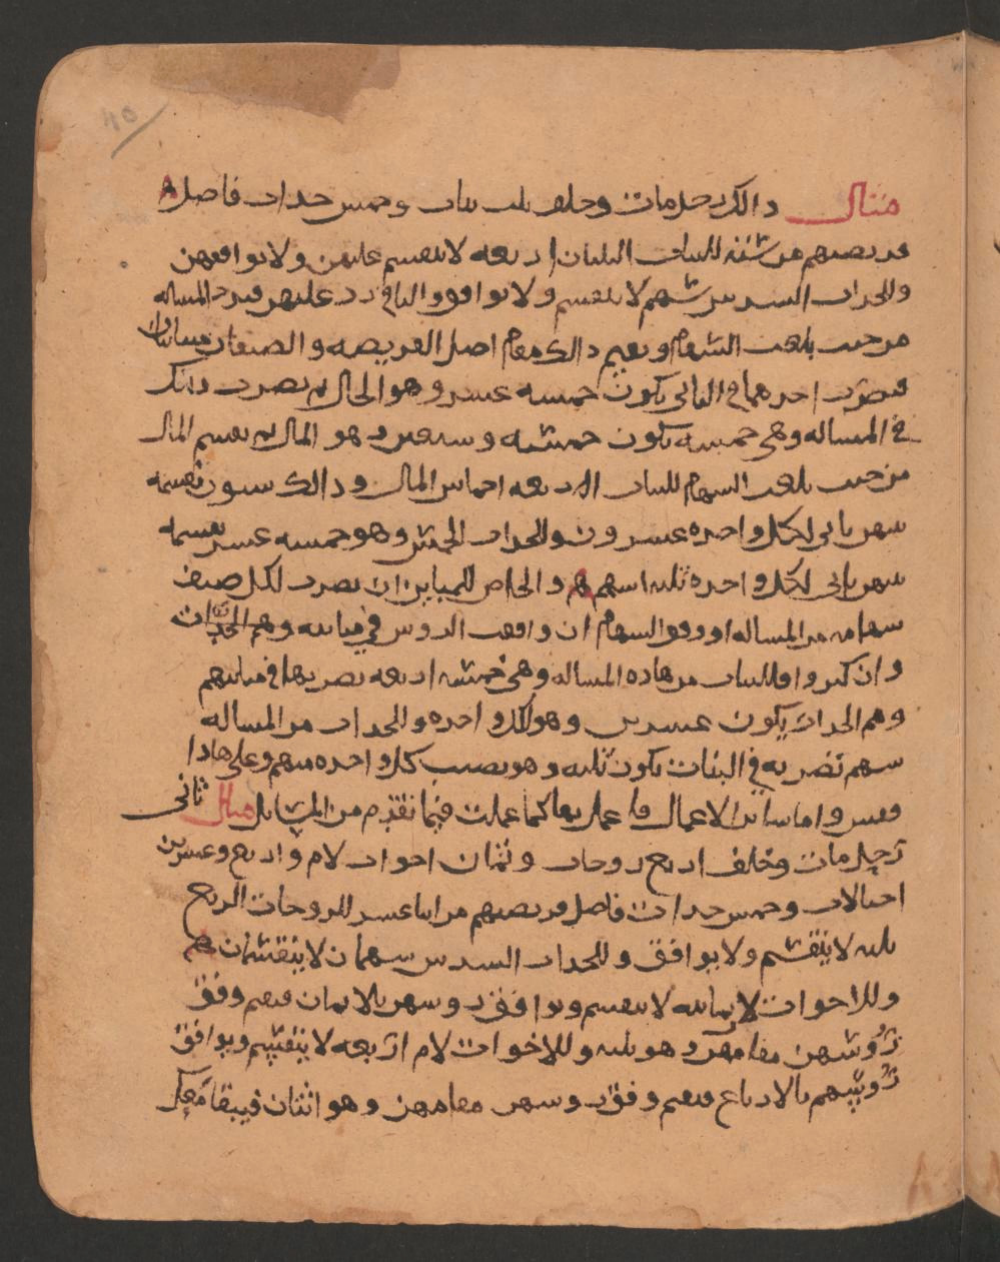 40
مثال ذالك رجل مات وخلف ثلاث بنات وخمس جدات فاصل
فريضتهم من ستة للبنات الثلثان اربعه لا تنقسم عليهن ولا توافقهن
وللجدات السدس سهم لا ينقسم ولا يوافق والباقي رد عليهن فترد المساله
من حيث بلغت السهام ويقيم ذالك مقام اصل الفريضه والصنفان متباينان
فتضرب احدهما في الثاني يكون خمسه عشر وهو الحال ثم تضرب ذلك
في المساله وهي خمسه يكون خمسه وسبعين وهو المال ثم تقسم المال
من حيث بلغت السهام للبنات الاربعه اخماس المال وذالك ستون تقسمه
بينهن ياتي لكل واحده عشرون وللجدات الخمس وهو خمسه عشر تقسمه
بينهن ياتي لكل واحده ثلثه اسهم والخاص للمباين ان تضرب لكل صنف
سهامه من المساله او وفق السهام ان وافقت الروس في مباينه وهم الجدات
وان كثروا فللبنات من هاذه المساله وهي خمسه اربعه تضربها في مباينهم
وهم الجدات يكون عشرين وهو لكل واحده وللجدات من المساله
سهم تضربه في البنات يكون ثلثه وهو نصيب كل واحده منهم وعلى هاذا
فقس واما سائر الاعمال فاعمل بها كما عملت فيما تقدم من المسائل مثال ثاني
رجل مات وخلف اربع زوجات وثمان اخوات لام واربع وعشرين
اختا لاب وخمس جدات فاصل فريضتهم من اثنا عشر للزوجات الربع
ثلثه لا ينقسم ولا يوافق وللجدات السدس سهمان لا ينقسمان
وللاخوات لاب ثمانيه لا تنقسم وتوافق روسهن بالاثمان فتقيم وفق
روسهن مقامهن وهو ثلثه وللاخوات لام اربعه لا ينقسم ويوافق
روسهم بالارباع فتقيم وفق روسهن مقامهن وهو اثنان فيبقا معك